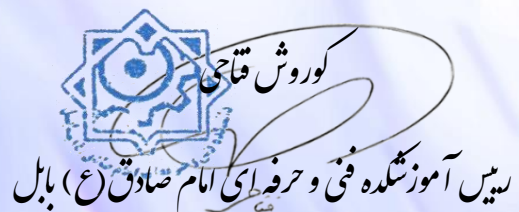 کوروش فتاحی
رییس آموزشکده فنی و حرفه ای امام صادق(ع) بابل